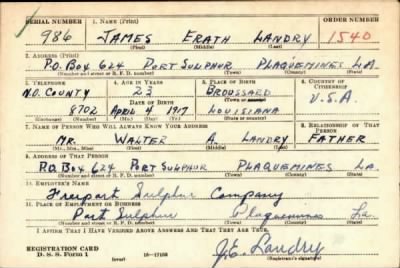 SERIAL NUMBER 1. NAME (Print) ORDER NUMBER
986 JAMES ERATH LANDRY 1540
(First) (Middle) (Last)
2. ADDRESS (Print)
P.O. BOX 624 PORT SULPHUR PLAQUEMINES LA.
(Number and street or R. F. D. number) (Town) (County) (State)
3. TELEPHONE 4. AGE IN YEARS 5. PLACE OF BIRTH 6. COUNTRY OF CITIZENSHIP
N.O. COUNTY 23 BROUSSARD U.S.A
(Town) (County)
DATE OF BIRTH
8702 APRIL 4 1917 LOUISIANA
(Exchange) (Number) (Mo.) (Day) (Yr.) (State or country)
7. NAME OF PERSON WHO WILL ALWAYS KNOW YOUR ADDRESS 8. RELATIONSHIP OF THAT PERSON
MR. WALTER A. LANDRY FATHER
(Mr., Mrs., Miss) (First) (Middle) (Last)
9. ADDRESS OF THAT PERSON
P.O. BOX 624 PORT SULPHUR PLAQUEMINES LA.
(Number and street or R. F. D. number) (Town) (County) (State)
10. EMPLOYER'S NAME
Freeport Sulphur Company
11. PLACE OF EMPLOYMENT OR BUSINESS
Port Sulphur Plaquemines La.
(Number and street or R. F. D. number) (Town) (County) (State)
I AFFIRM THAT I HAVE VERIFIED ABOVE ANSWERS AND THAT THEY ARE TRUE.
REGISTRATION CARD
D. S. S. Form 1 (over) 16—17105 J.E. Landry
(Registrant's signature)